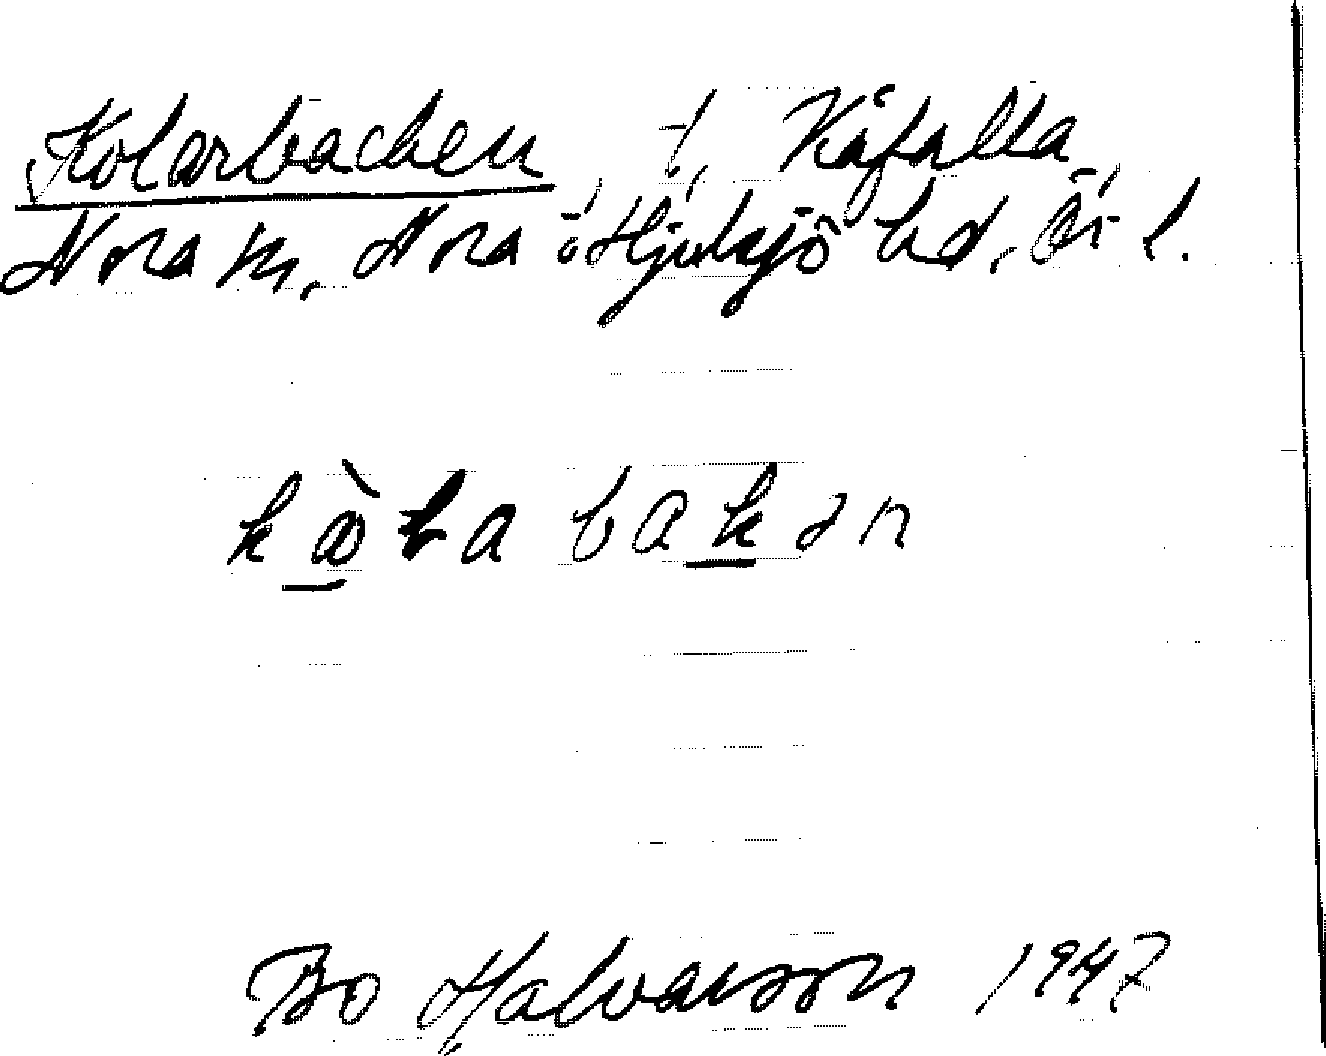 Kolarbacken t. Kåfalla
Nora m. Nora o. Hjulsjö hd. Ör. l.
kåla bakan
Bo Halvarson 1947